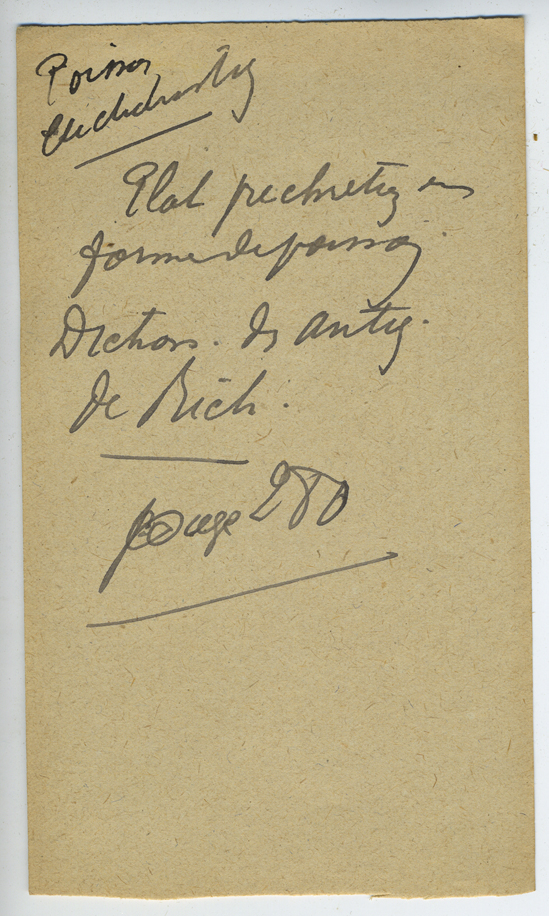 Poisson
Plat
forme de poisson
Diction. des antiq.
de Rich.
page 280